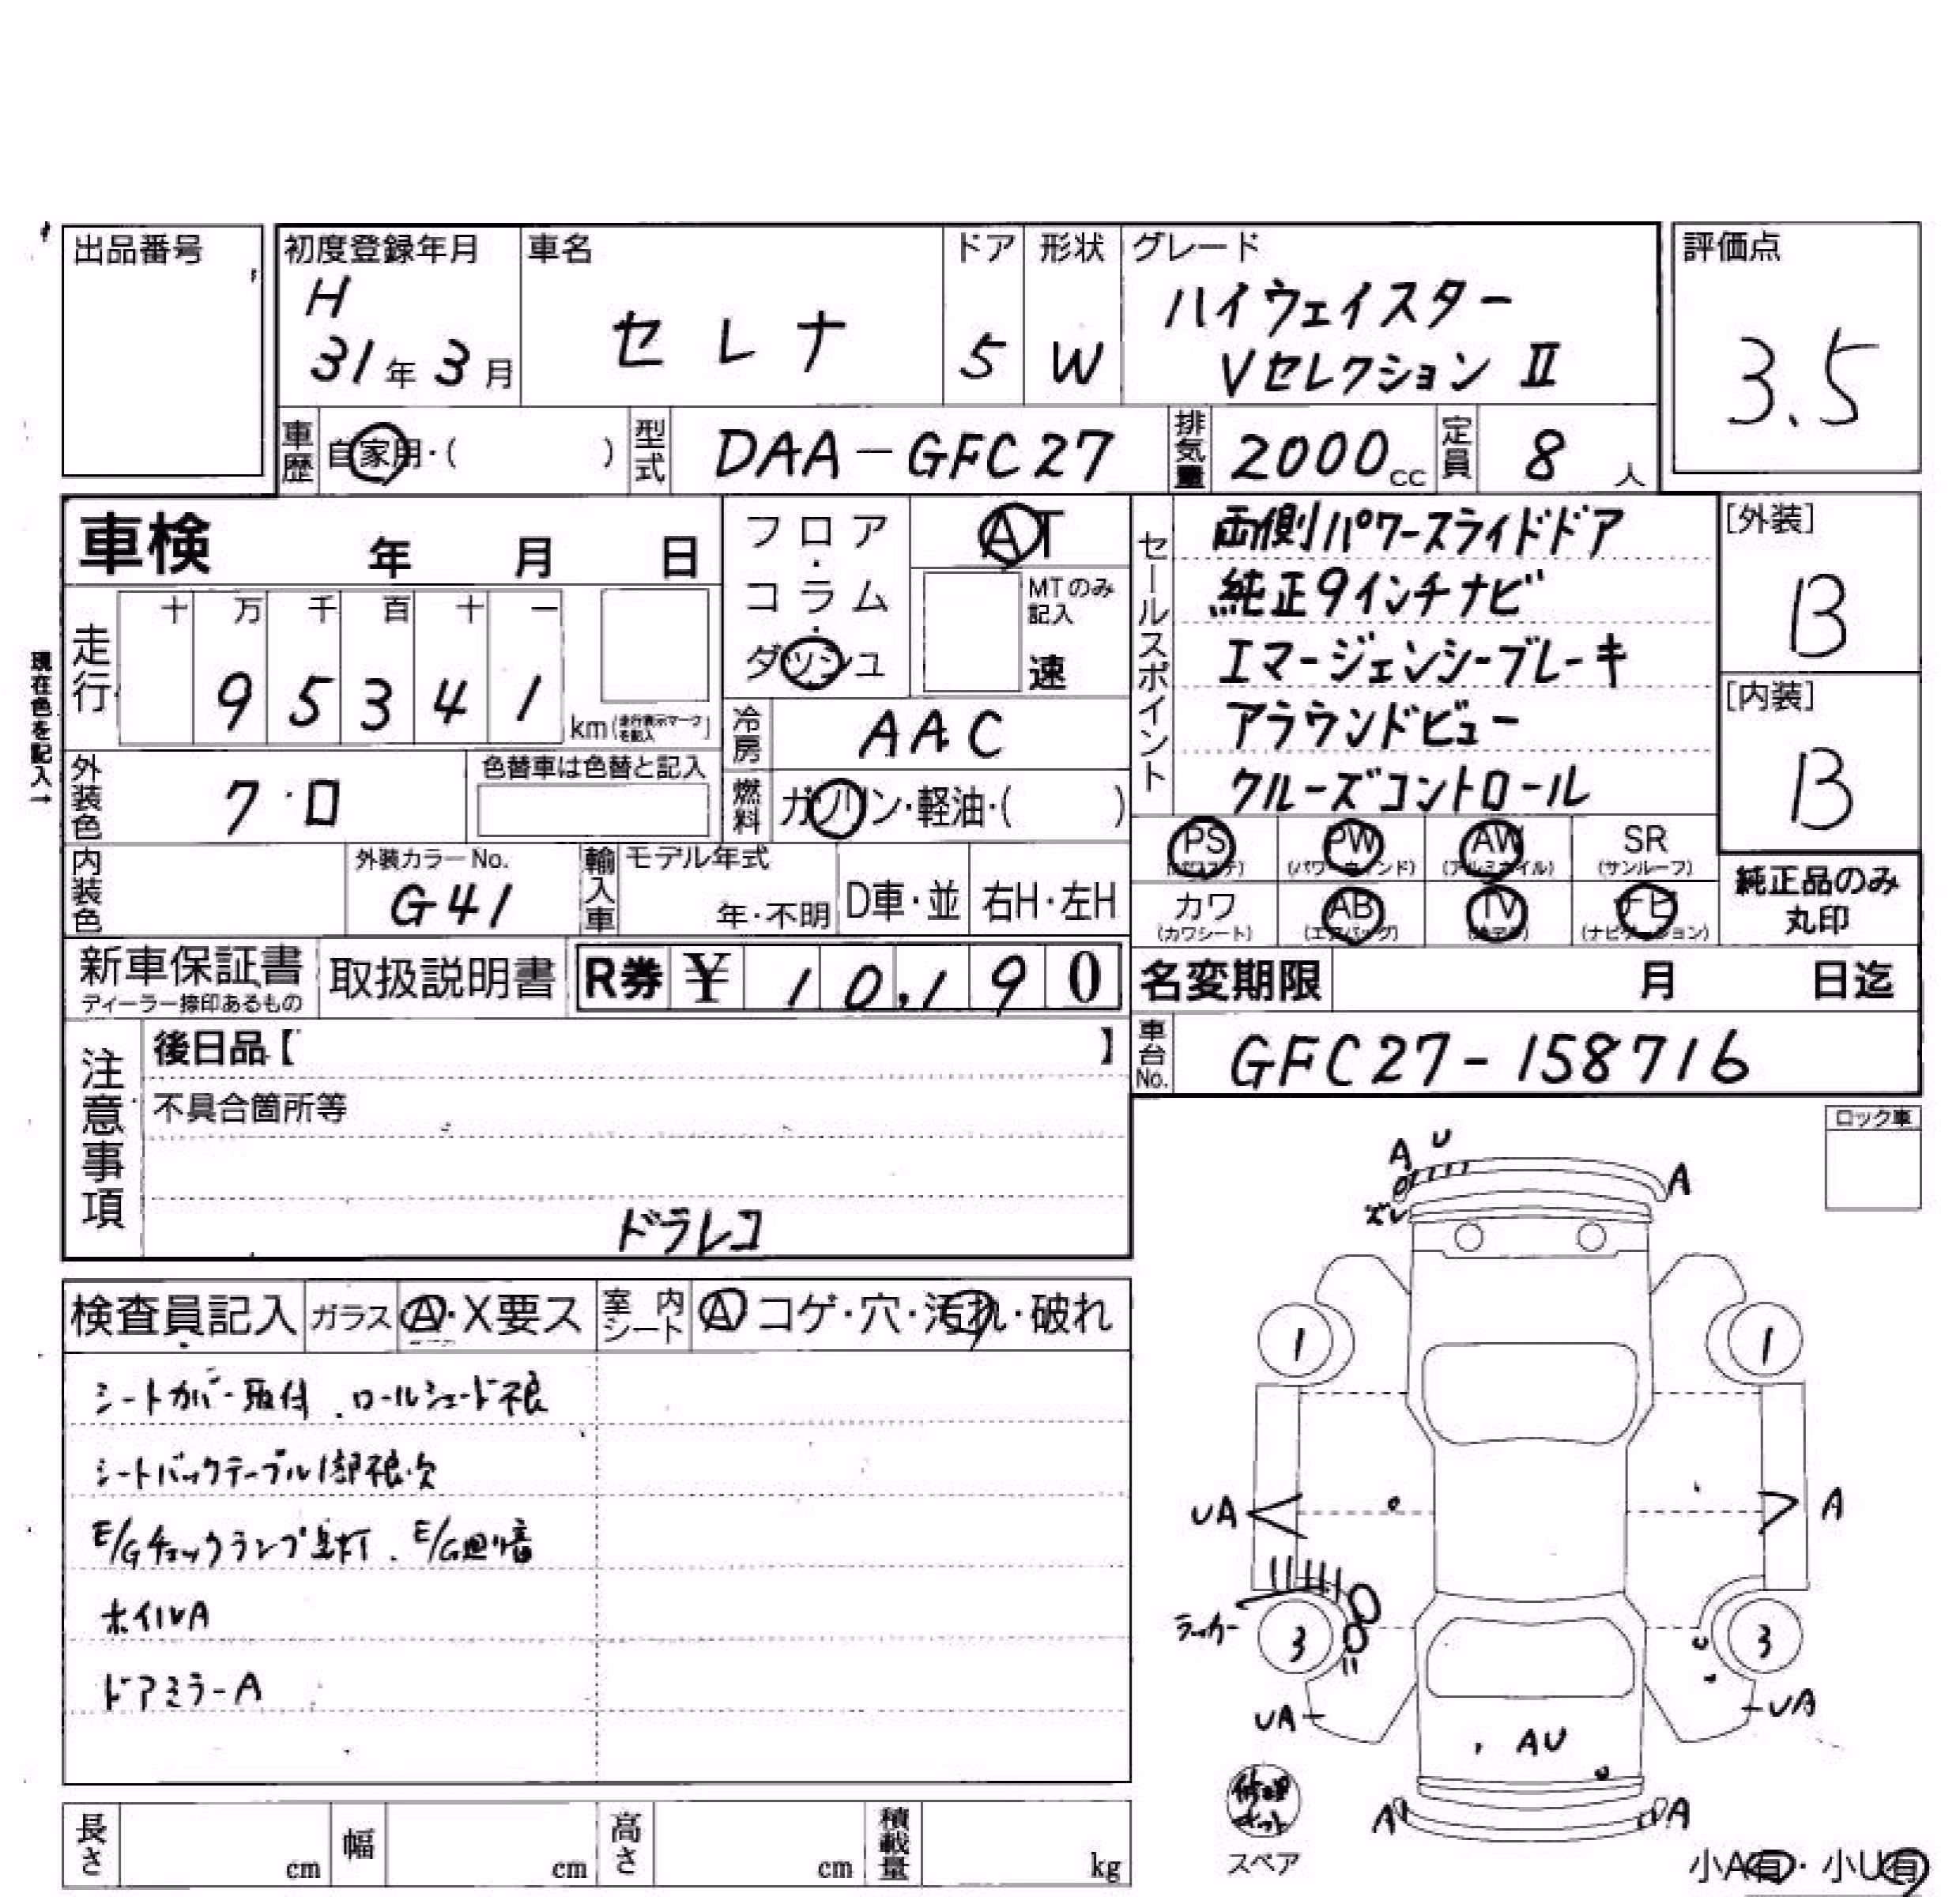 出品番号
初度登録年月
H
31年3月
車名
セレナ
ドア
5
形状
W
グレード
ハイウェイスター
Vセレクション II
評価点
3.5
車歴
自家用・( )
型式
DAA-GFC27
排気量
2000cc
定員
8人
車検 年 月 日
フロア・コラム・ダッシュ
AT
MTのみ記入
速
セールスポイント
両側パワースライドドア
純正9インチナビ
エマージェンシーブレーキ
アラウンドビュー
クルーズコントロール
[外装]
B
[内装]
B
現在色を記入→
走行
十 万 千 百 十 一
9 5 3 4 1
km(走行表示マークを記入)
冷房
AAC
外装色
7・ロ
色替車は色替と記入
燃料
ガソリン・軽油・( )
PS
(パワステ)
PW
(パワーウィンド)
AW
(アルミホイル)
SR
(サンルーフ)
カワ
(カワシート)
AB
(エアバッグ)
TV
ナビ
(ナビゲーション)
純正品のみ
丸印
内装色
外装カラーNo.
G41
輸入車
モデル年式
年・不明
D車・並
右H・左H
新車保証書
ディーラー捺印あるもの
取扱説明書
R券 ¥ 10,190
名変期限 月 日迄
車台No.
GFC27-158716
注意事項
後日品【 】
不具合箇所等
ドラレコ
ロック車
検査員記入
ガラス
A・X要ス
室内シート
A コゲ・穴・汚れ・破れ
シートカバー取付、ロールシェード不良
シートバックテーブル1部不良・欠
E/Gチェックランプ点灯、E/G廻り音
ホイルA
ドアミラーA
A U
A
ズレ
1
1
UA
A
ラッカー
3
3
UA
UA
AU
A
A
修理キット
スペア
小A有・小U有
長さ
cm
幅
cm
高さ
cm
積載量
kg